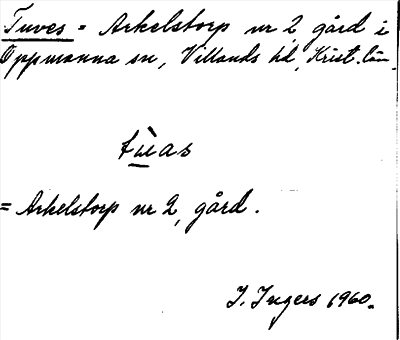 Tuves = Arkelstorp nr 2 gård i
Oppmanna sn, Villands hd, Krist. län.
tùas
= Arkelstorp nr 2, gård.
I. Ingers 1960.